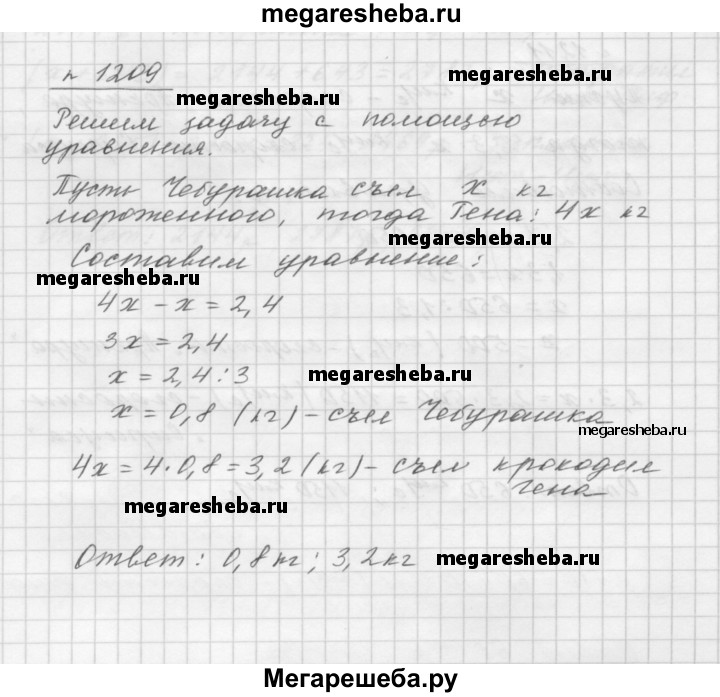 megaresheba.ru
n 1209
megaresheba.ru
megaresheba.ru
Решим задачу с помощью
уравнения.
Пусть Чебурашка съел x кг
мороженного, тогда Гена: 4x кг
megaresheba.ru
Составим уравнение:
megaresheba.ru
4x - x = 2,4
3x = 2,4
x = 2,4 : 3
megaresheba.ru
x = 0,8 (кг) - съел Чебурашка
megaresheba.ru
4x = 4·0,8 = 3,2 (кг) - съел крокодил
гена
megaresheba.ru
Ответ: 0,8кг; 3,2кг
megaresheba.ru
Мегарешеба.ру